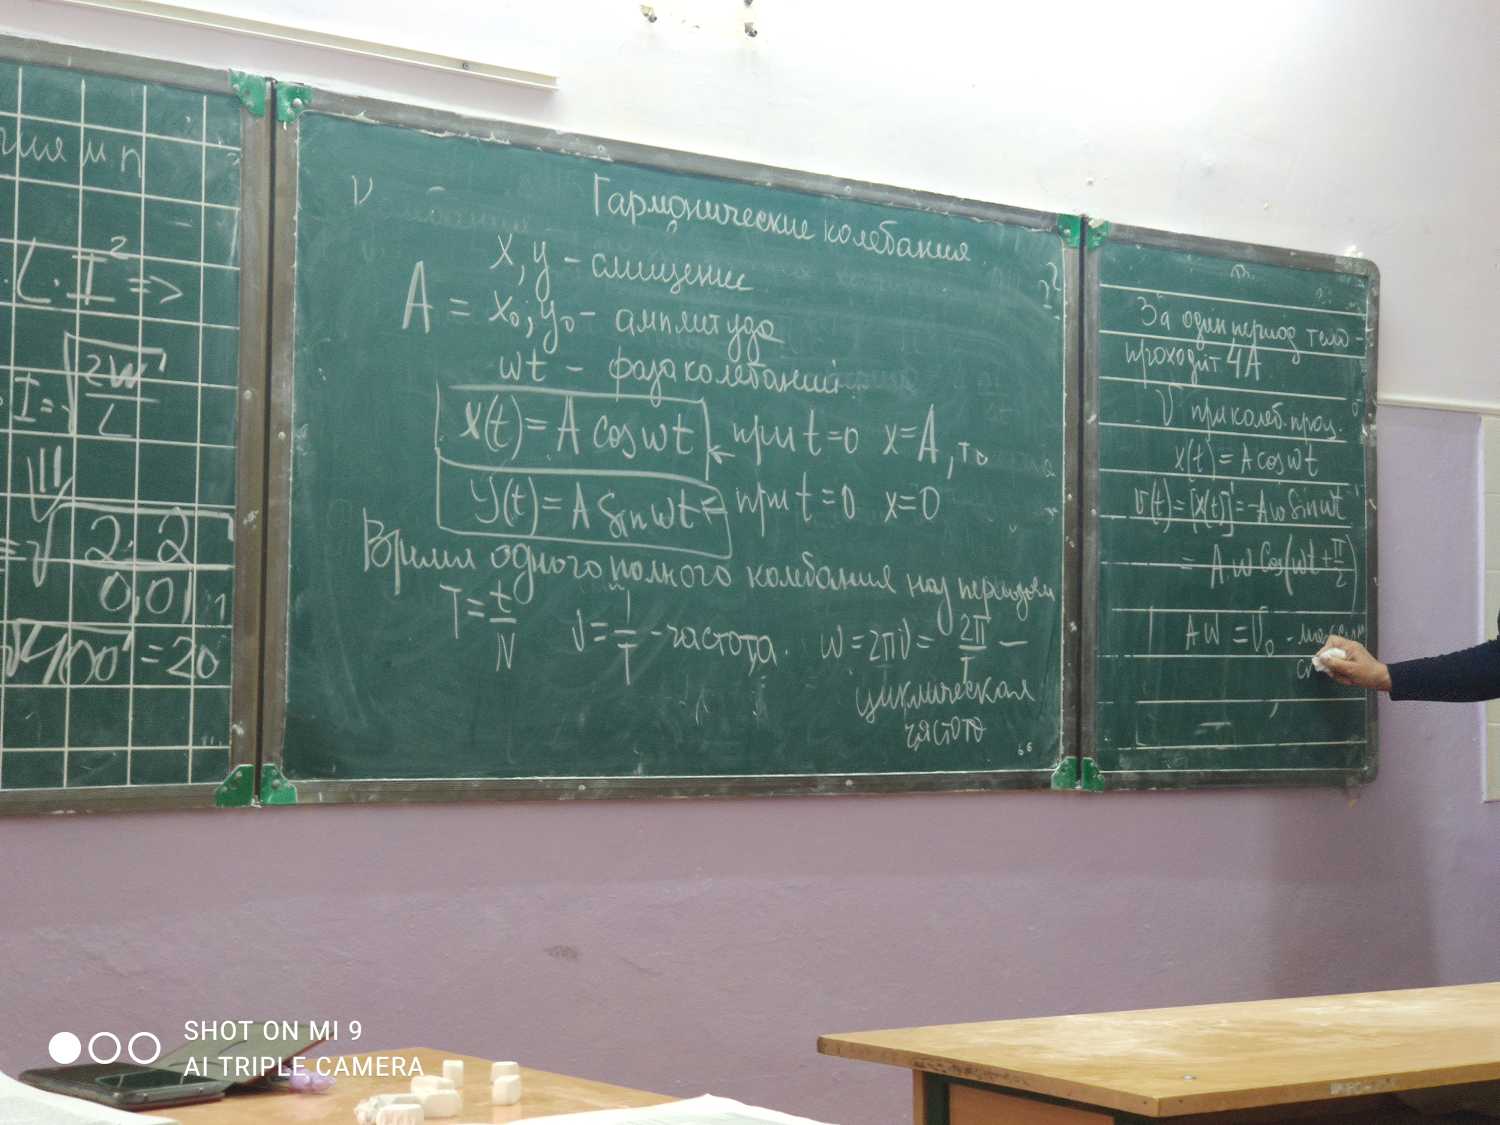 и п
L · I² =>
I = √2W/L
= √2·2/0,01
√400 = 20
Гармонические колебания
x, y - смищение
A = x₀; y₀ - амплитуда
wt - фаза колебаний
x(t) = A cos wt ← при t=0 x=A, то
y(t) = A sin wt ← при t=0 x=0
Время одного полного колебания наз периодом
T = t/N ν = 1/T - частота. w = 2πν = 2π/T —
циклическая
частота
За один период тело
проходит 4A
V при колеб. проц.
x(t) = A cos wt
v(t) = [x(t)]' = -Aw sin wt
= A w cos(wt + π/2)
Aw = V₀ -
SHOT ON MI 9
AI TRIPLE CAMERA